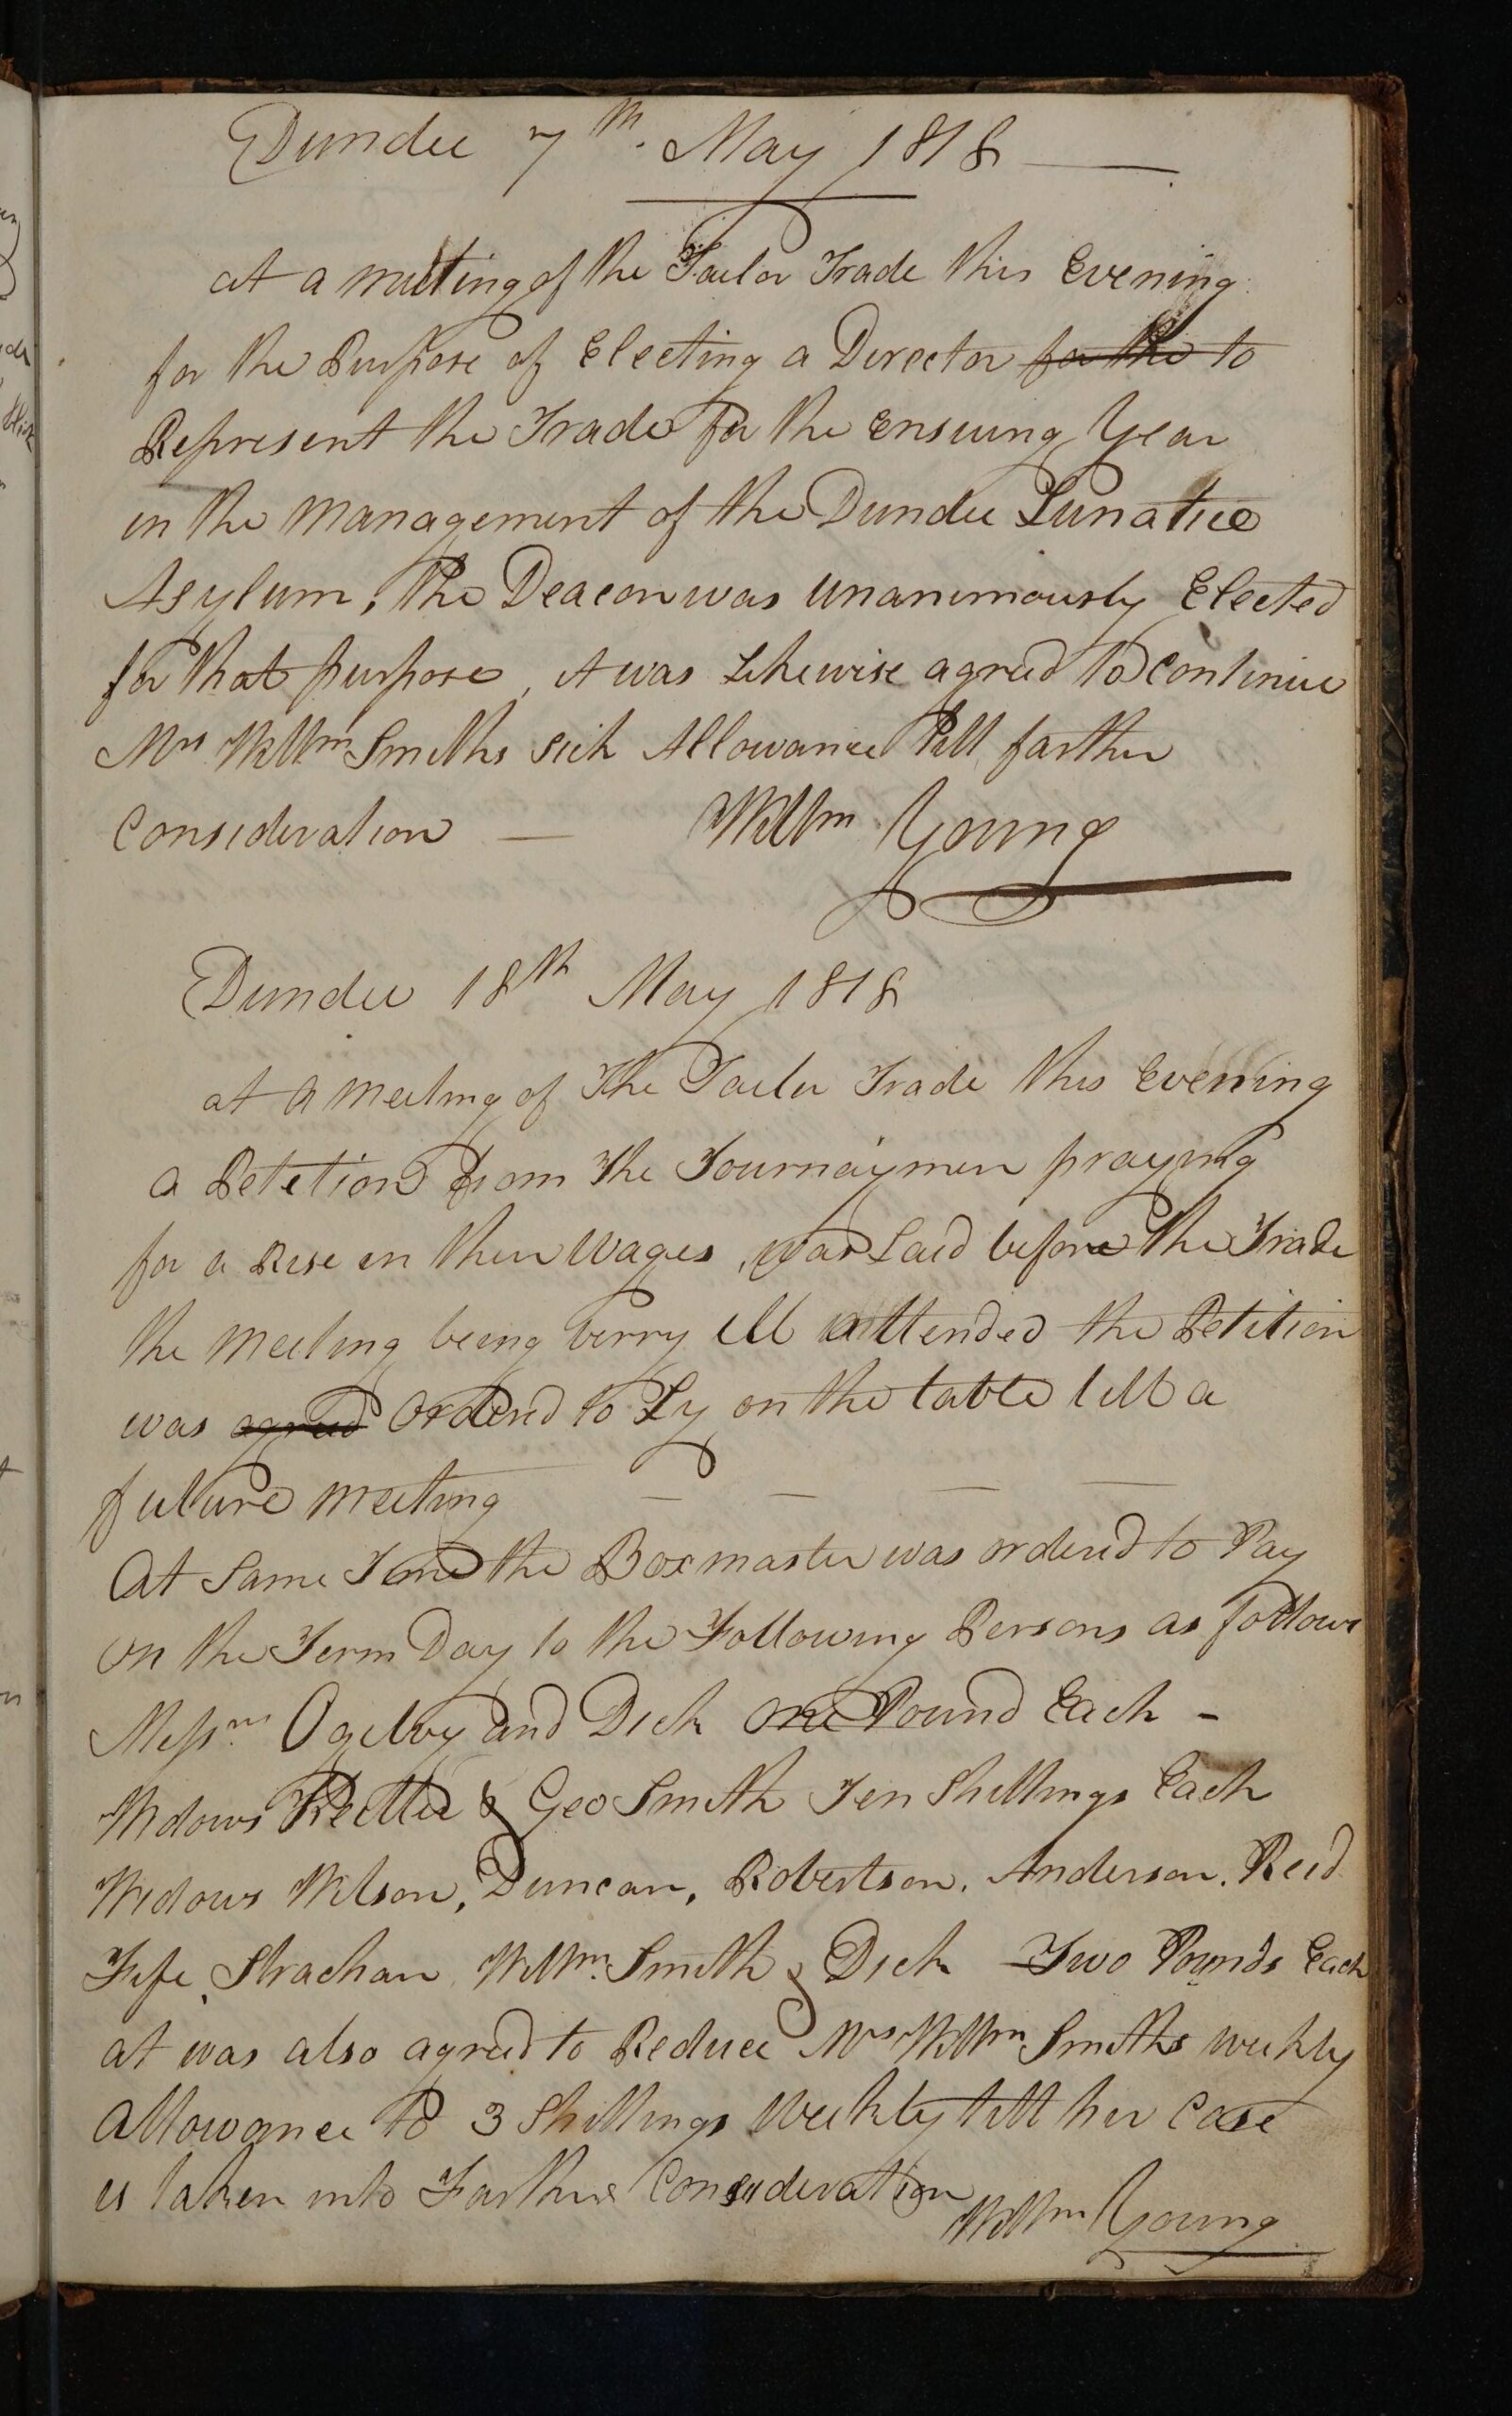 Dundee 7th. May 1818
at a meeting of the Tailor Trade this Evening
for the Purpose of Electing a Director for the to
Represent the Trade for the Ensuing Year
in the Management of the Dundee Lunatice
Asylum, the Deacon was Unanimously Elected
for that purpose, it was Likewise agreed to Continue
Mrs Willm Smiths Sick Allowance till farther
Consideration — Willm Young
Dundee 18th May 1818
at a Meeting of The Tailor Trade this Evening
a Petetion from The Journaymen praying
for a Rise in their Wages, was Laid before the Trade
the Meeting being verry ill attended the Petition
was agreed Ordered to Ly on the table till a
future Meeting — — — —
At Same Time the Boxmaster was ordered to Pay
on the Term Day to the Following Persons as follows
Messrs Ogilvy and Dick One Pound Each -
Widows & Geo Smith Ten Shillings Each
Widows Wilson, Duncan, Robertson, Anderson, Reid
Fife, Strachan, Willm. Smith & Dick Two Pounds Each
at was also agreed to Reduce Mrs Willm Smiths weekly
Allowance to 3 Shillings Weekly till her Case
is taken into Farther Consideration Willm Young